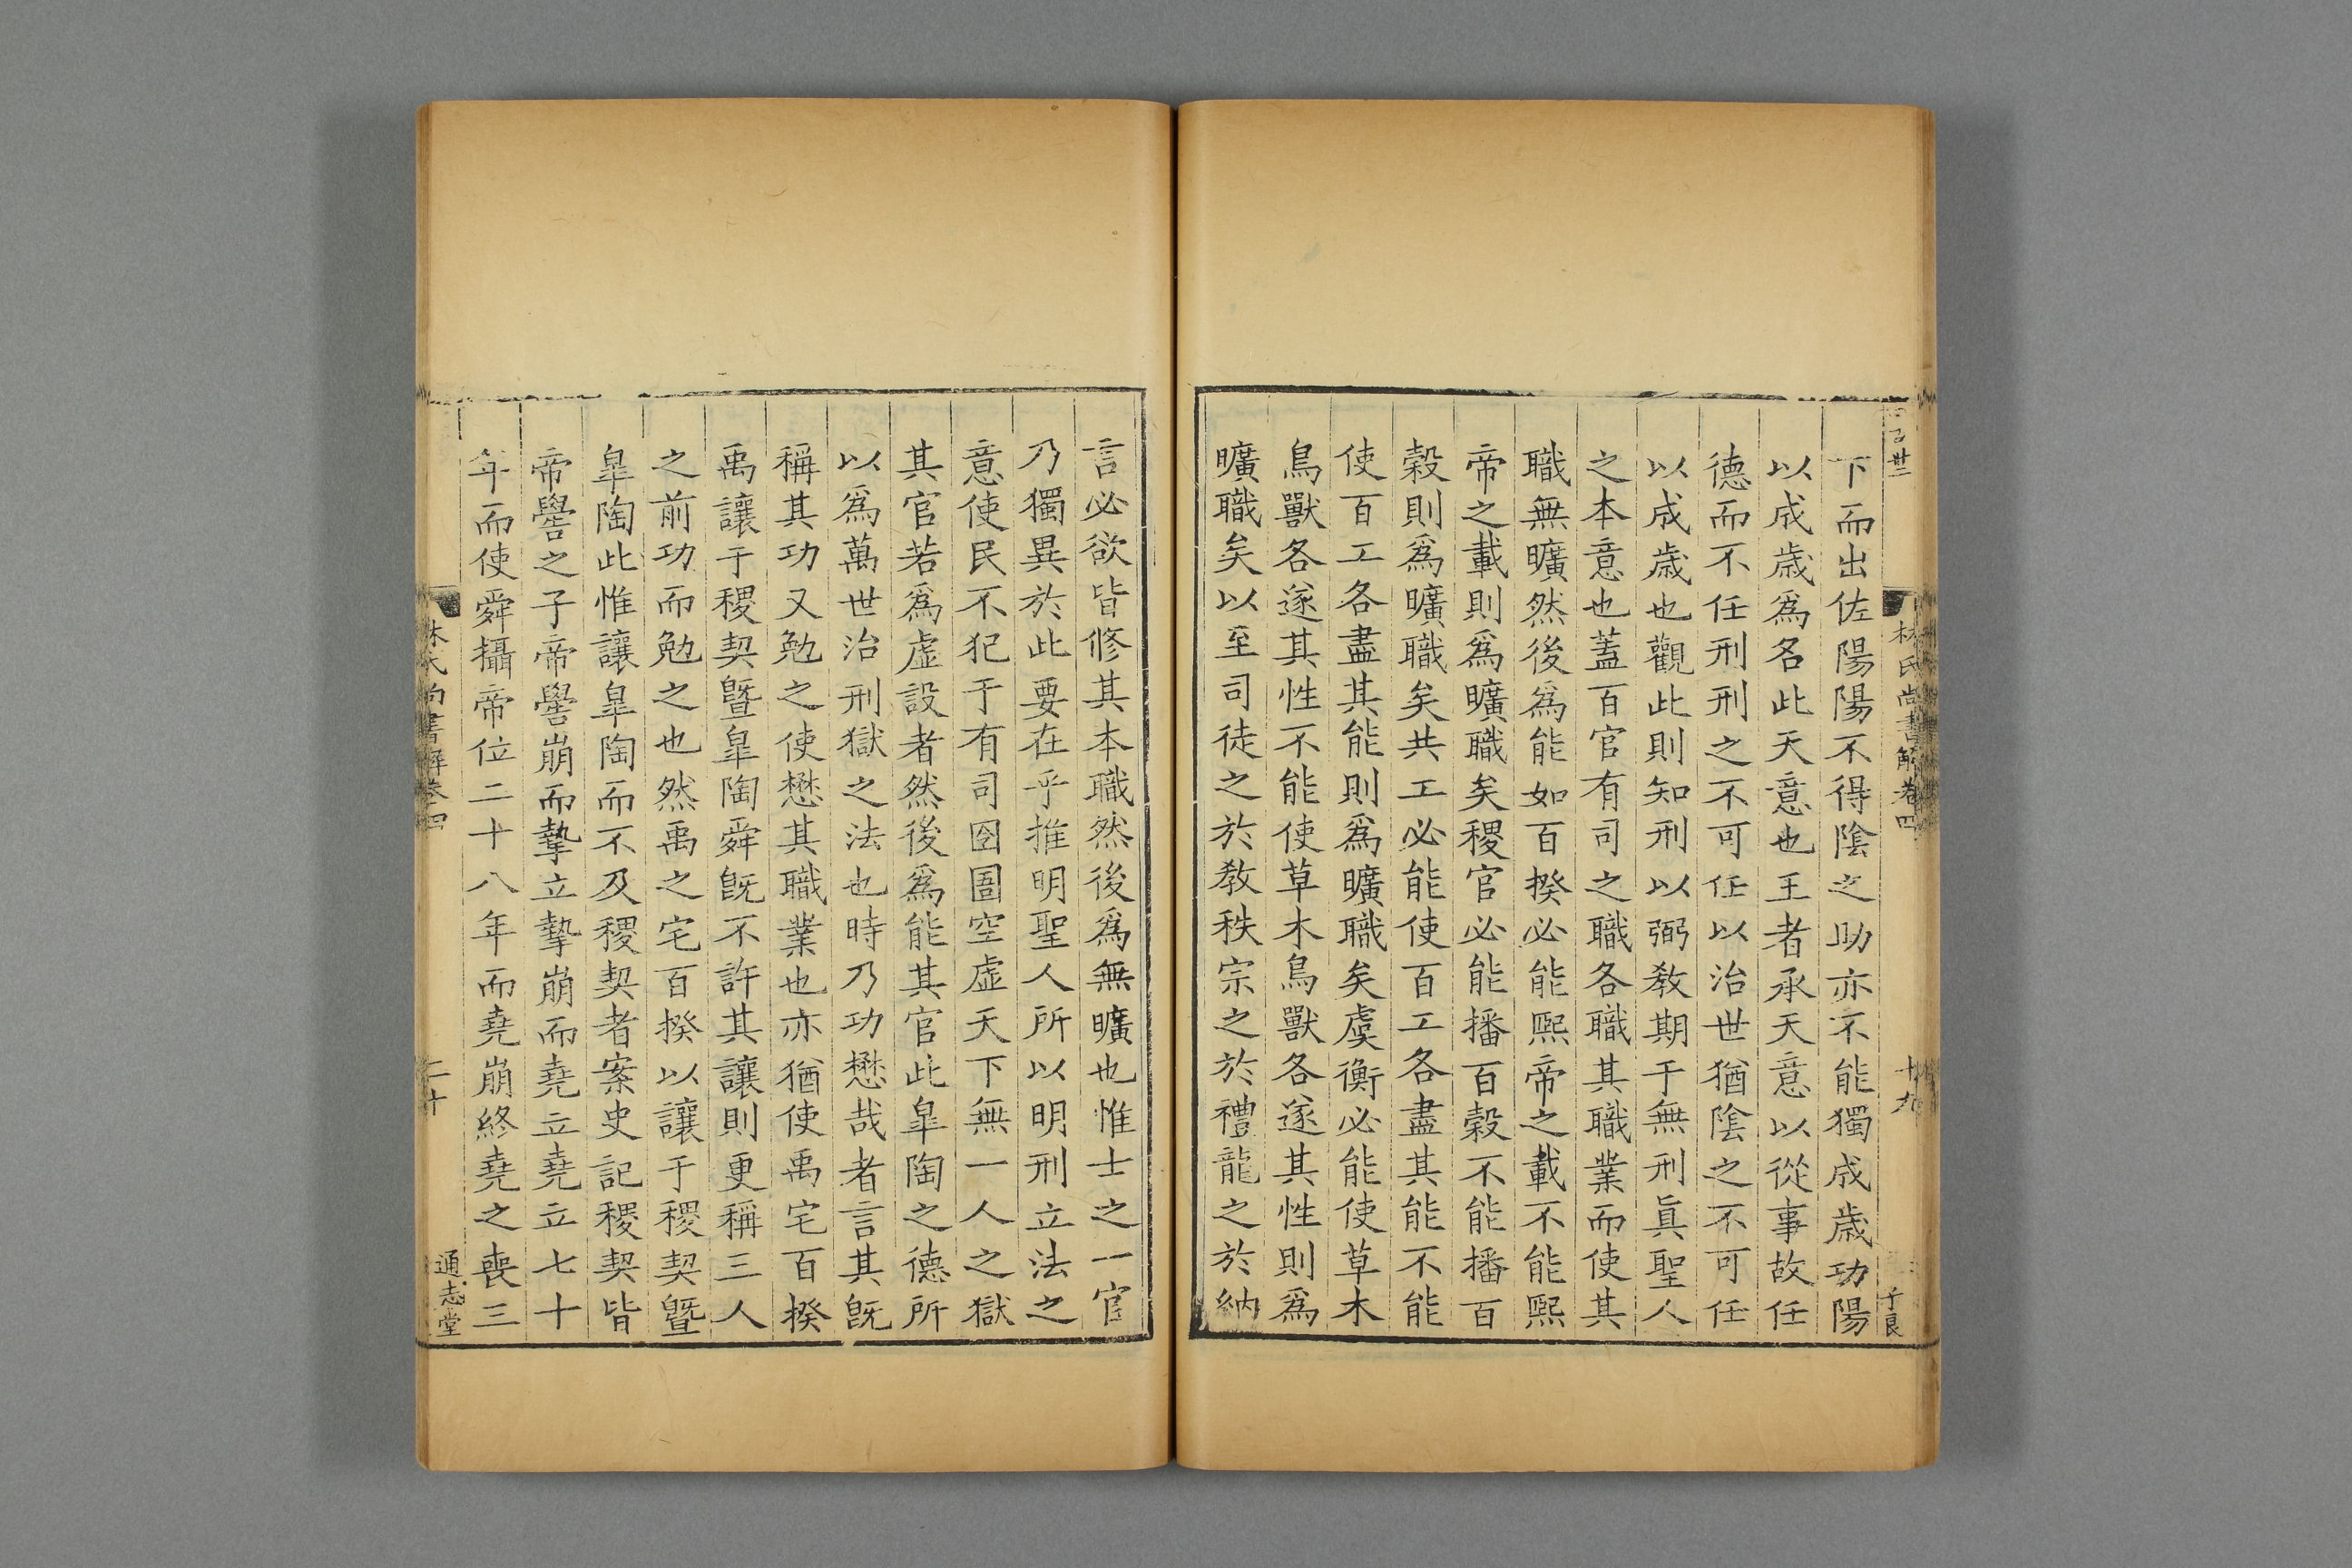 林氏尚書解卷四
十九
下而出佐陽陽不得陰之助亦不能獨成歲功陽
以成歲爲名此天意也王者承天意以從事故任
德而不任刑刑之不可任以治世猶陰之不可任
以成歲也觀此則知刑以弼教期于無刑眞聖人
之本意也蓋百官有司之職各職其職業而使其
職無曠然後爲能如百揆必能熙帝之載不能熙
帝之載則爲曠職矣稷官必能播百穀不能播百
穀則爲曠職矣共工必能使百工各盡其能不能
使百工各盡其能則爲曠職矣虞衡必能使草木
鳥獸各遂其性不能使草木鳥獸各遂其性則爲
曠職矣以至司徒之於教秩宗之於禮龍之於納
言必欲皆修其本職然後爲無曠也惟士之一官
乃獨異於此要在乎推明聖人所以明刑立法之
意使民不犯于有司囹圄空虛天下無一人之獄
其官若爲虛設者然後爲能其官此臯陶之德所
以爲萬世治刑獄之法也時乃功懋哉者言其旣
稱其功又勉之使懋其職業也亦猶使禹宅百揆
禹讓于稷契曁臯陶舜旣不許其讓則更稱三人
之前功而勉之也然禹之宅百揆以讓于稷契曁
臯陶此惟讓臯陶而不及稷契者案史記稷契皆
帝嚳之子帝嚳崩而摯立摯崩而堯立堯立七十
年而使舜攝帝位二十八年而堯崩終堯之喪三
林氏尚書解卷四
二十
通志堂